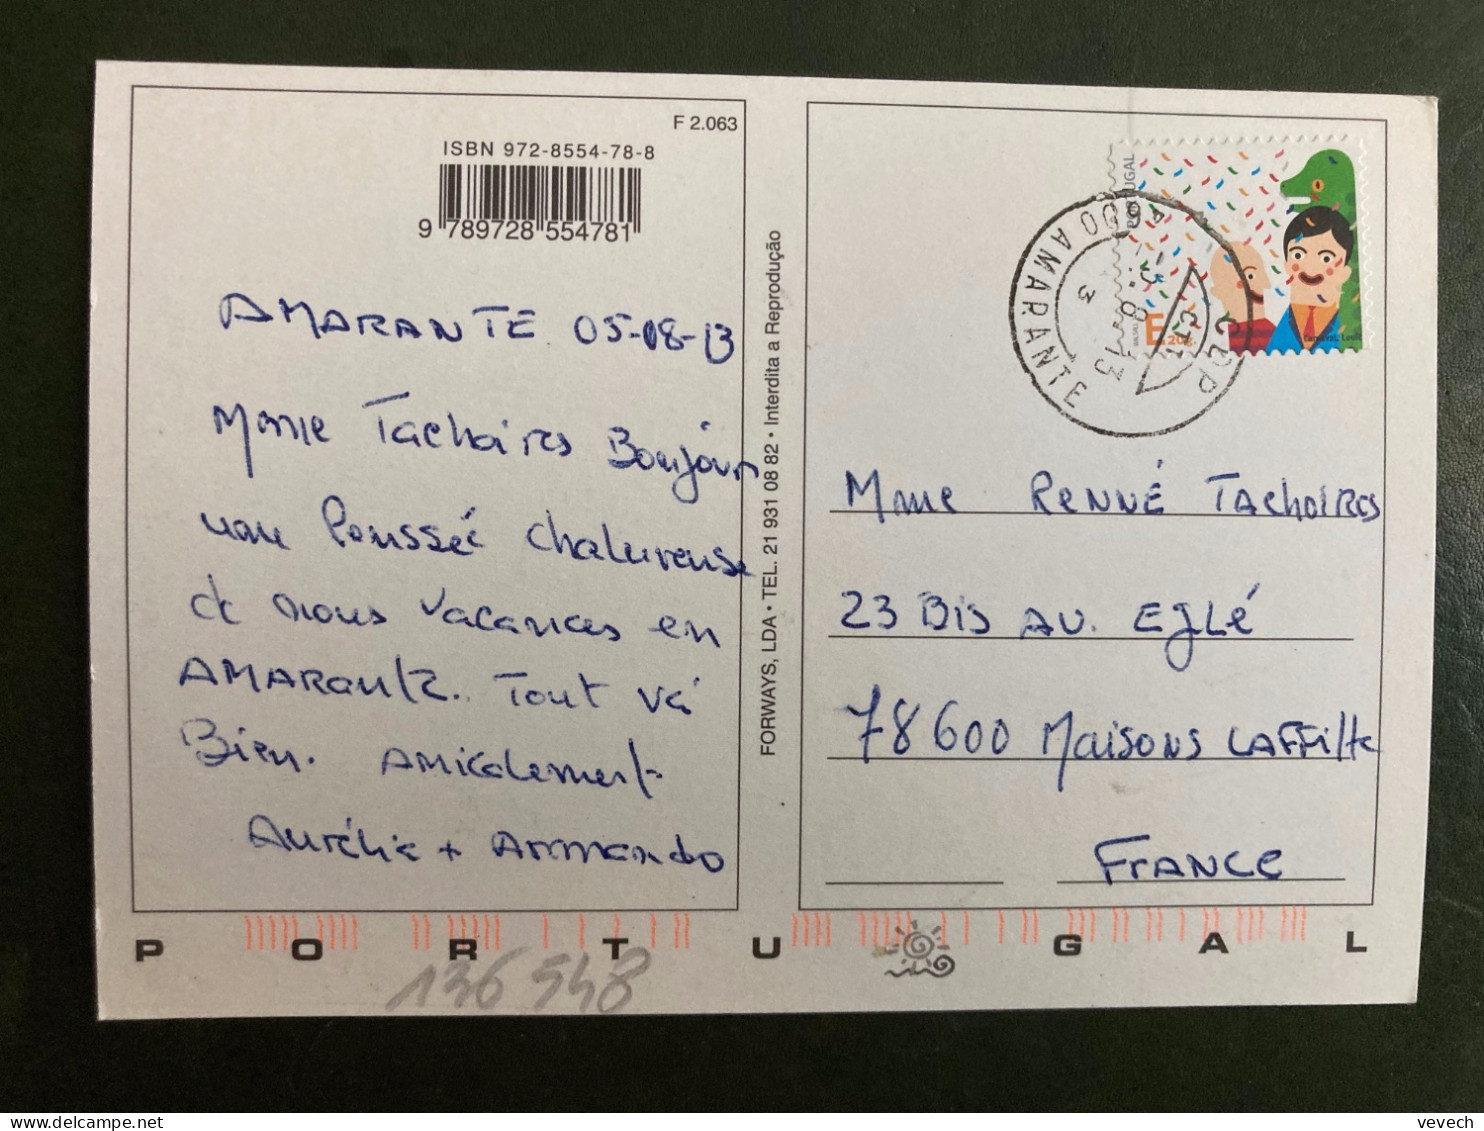 F 2.063
ISBN 972-8554-78-8
9 789728 554781
AMARANTE 05-08-13
Mme Tachoires Bonjour
une Poussée chalureuse
de nous vacances en
AMARante. Tout vá
Bien. Amicalement
Aurélie + Armando
FORWAYS, LDA • TEL. 21 931 08 82 • Interdita a Reprodução
PORTUGAL
E 20g.
4600 AMARANTE
-5. 8. 13
3
Mme RENNÉ TACHOIRES
23 Bis AV. EgLé
78600 Maisons LAFFitte
FRANCE
PORTUGAL
136 548
vevech